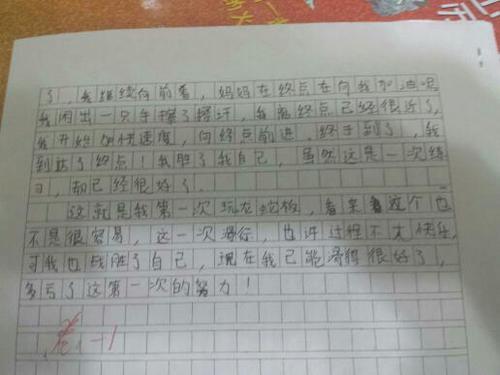 了，我继续向前看，妈妈在终点在向我加油呢
我闲出一只手擦了擦汗，我离终点已经很近了，
我开始加快速度，向终点前进，终于到了，我
到达了终点！我胜了我自己，虽然这是一次练
习，却已经很好了。
这就是我第一次玩龙蛇板，看来看这个也
不是很容易，这一次滑行，也许过程不太快乐，
可我也战胜了自己，现在我已能滑得很好了，
多亏了这第一次的努力！
-1